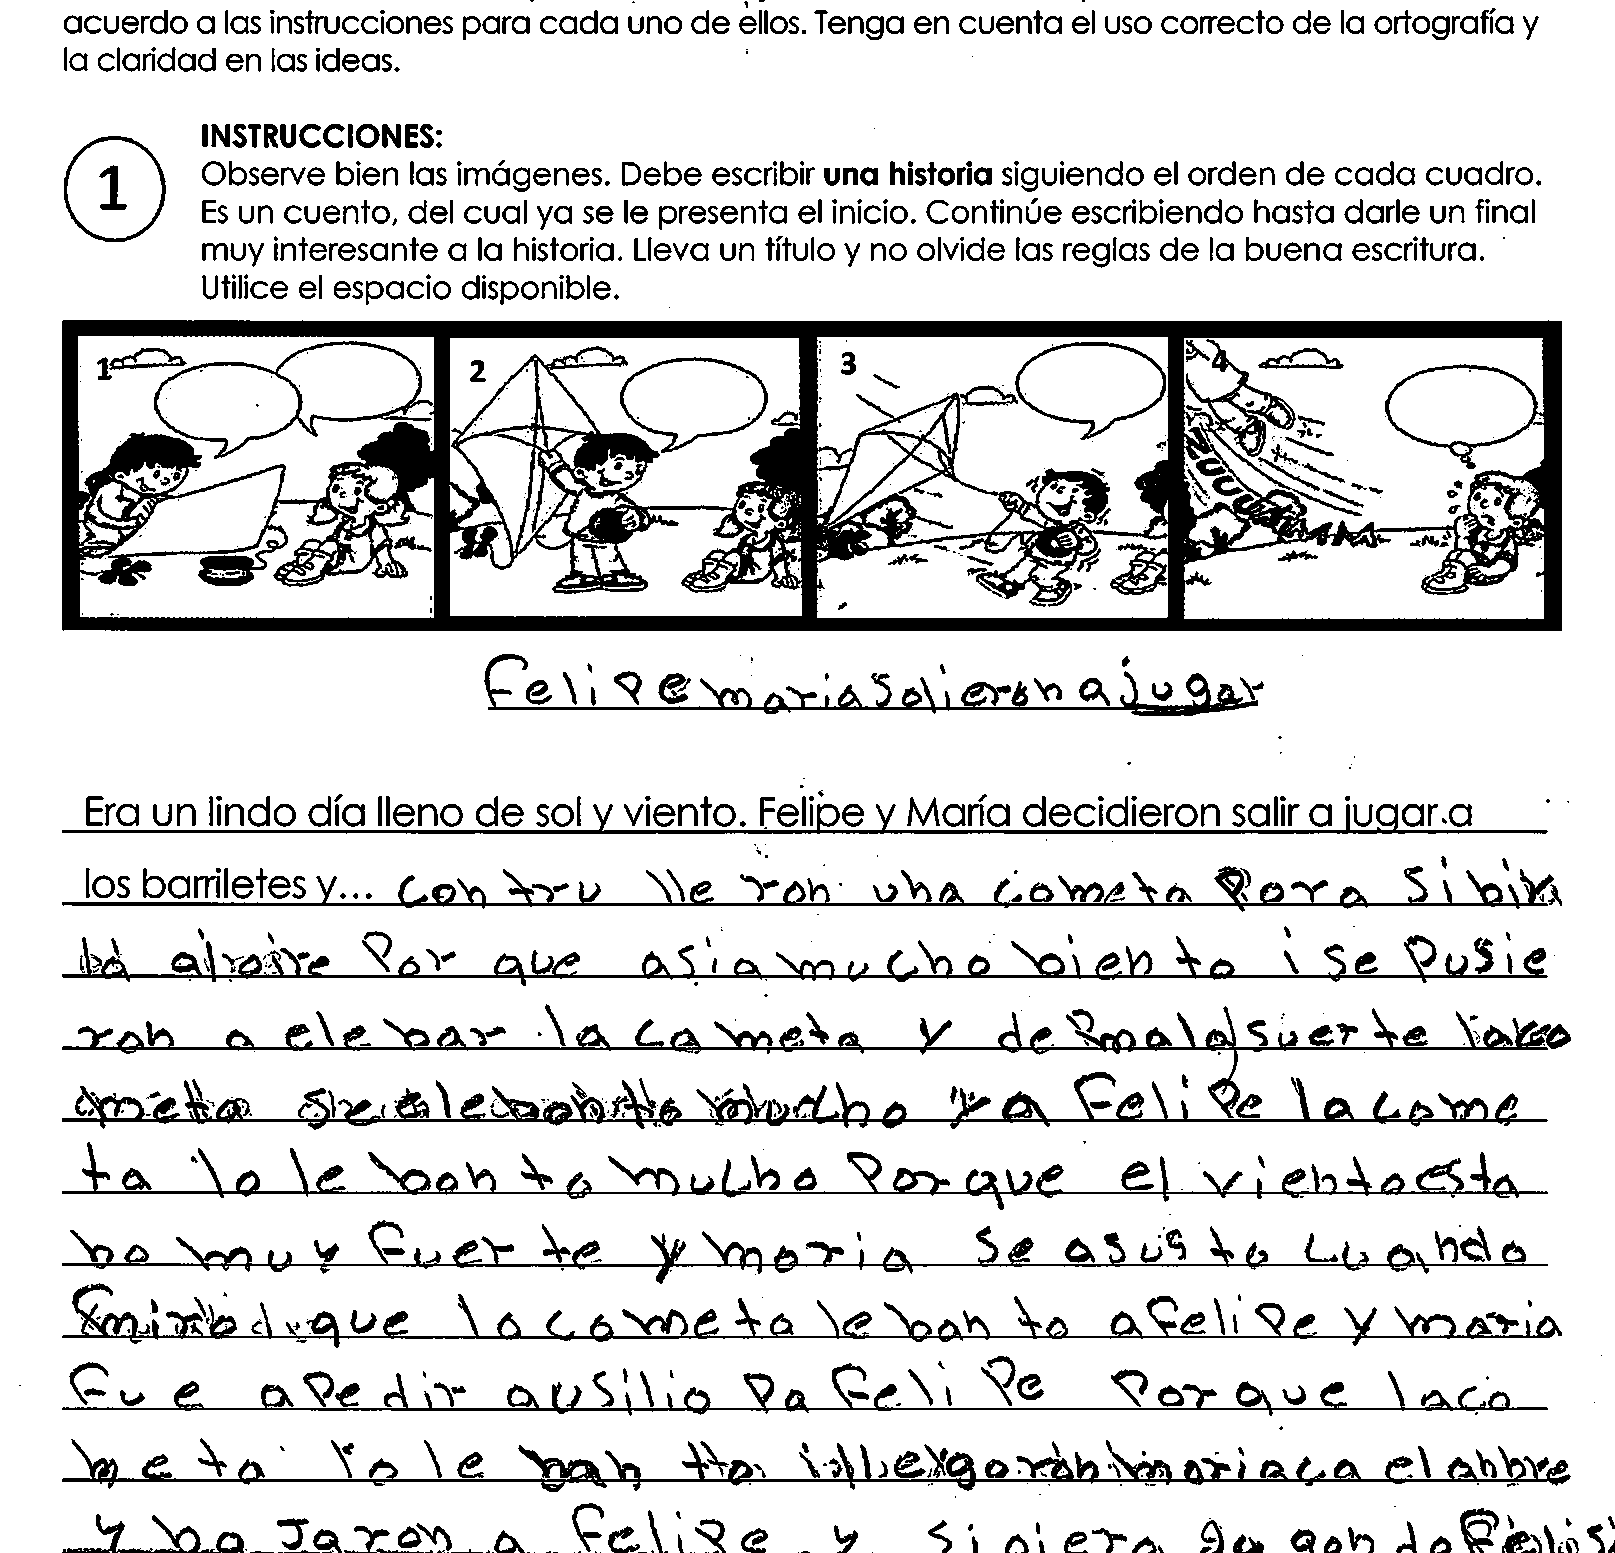 acuerdo a las instrucciones para cada uno de ellos. Tenga en cuenta el uso correcto de la ortografía y
la claridad en las ideas.
1
INSTRUCCIONES:
Observe bien las imágenes. Debe escribir una historia siguiendo el orden de cada cuadro.
Es un cuento, del cual ya se le presenta el inicio. Continúe escribiendo hasta darle un final
muy interesante a la historia. Lleva un título y no olvide las reglas de la buena escritura.
Utilice el espacio disponible.
1 2 3 4
ZUUUU
Felipe maria Salieron a jugar
Era un lindo día lleno de sol y viento. Felipe y María decidieron salir a jugar a
los barriletes y... contru lle ron una cometa para
por que asia mucho biento i se pusie
ron a ele bar la cometa y de mala suerte
mucho y a Felipe la come
ta lo le ban to mucho porque el viento esta
ba muy fuerte y maria se asusto cuando
que la cometa le ban to a felipe y maria
fue a pedir ausilio pa Feli pe porque laco
meta lo le ban to maria ca el
y ba jaron a felipe y